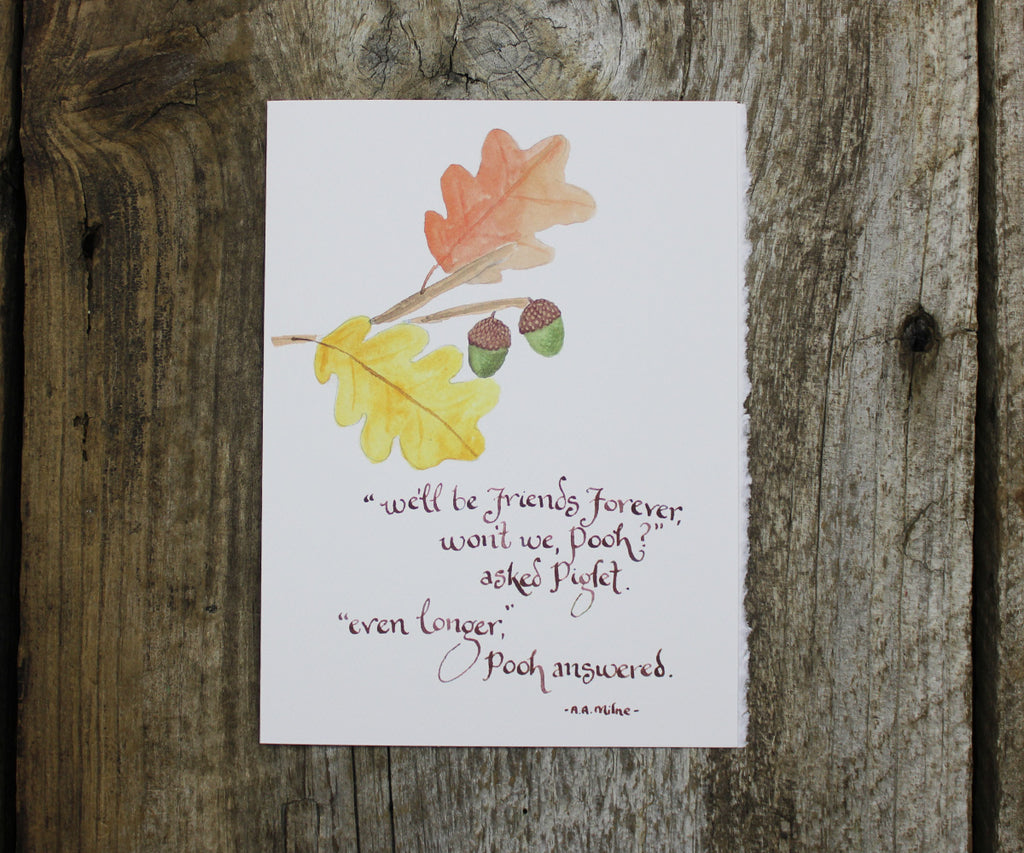 “we'll be Friends Forever,
won't we, Pooh?”
asked Piglet.
“even longer,”
Pooh answered.
-A.A. Milne-